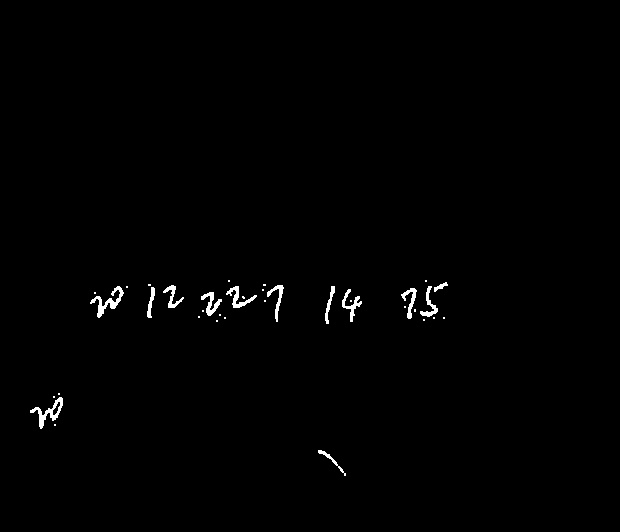 20 12 22 7 14 75
20